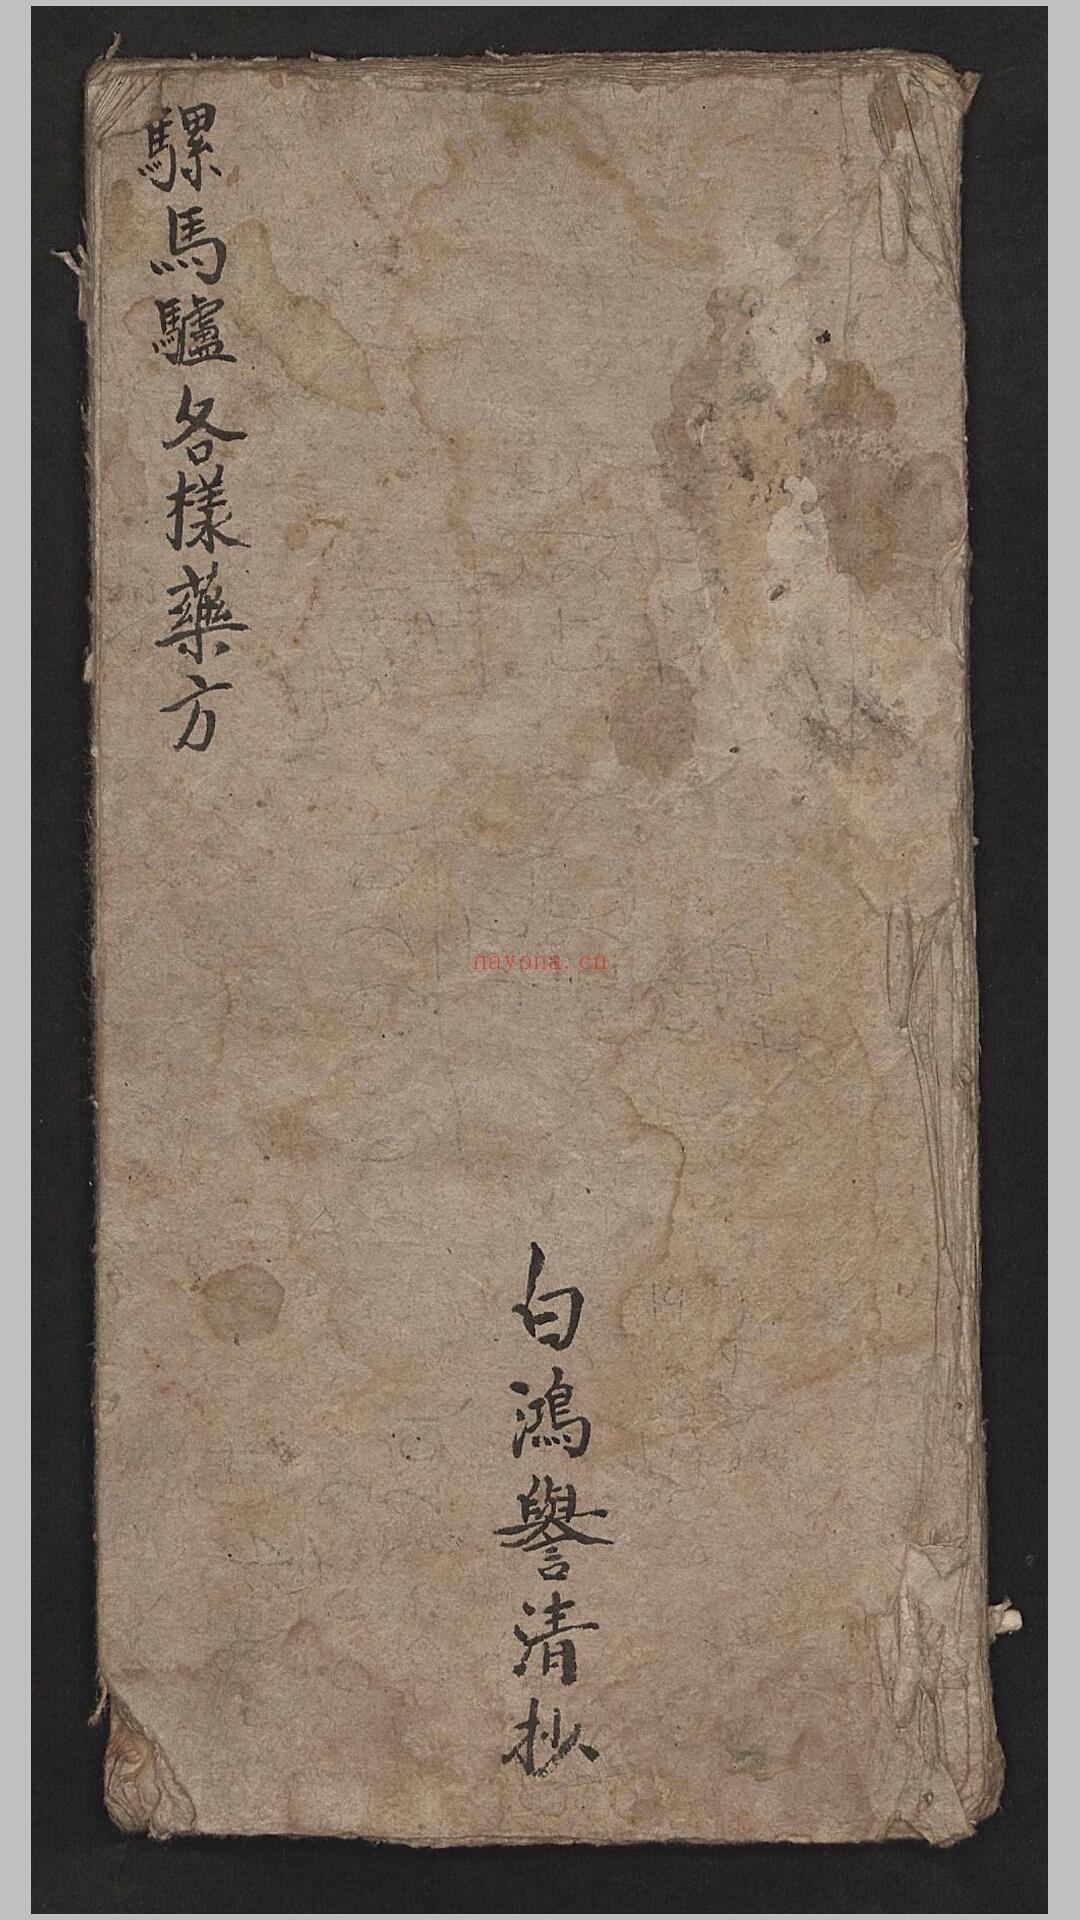 騾馬驢各樣藥方
白鴻譽清抄
nayona.cn